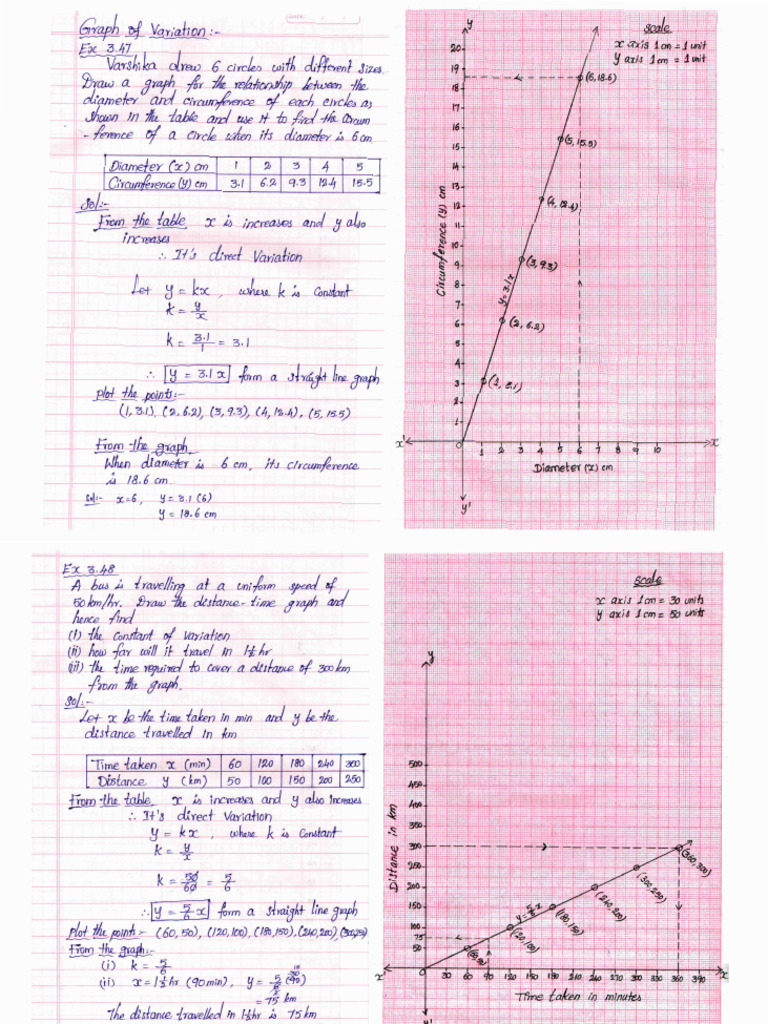 Graph of Variation:-
Ex 3.47
Varshika drew 6 circles with different sizes.
Draw a graph for the relationship between the
diameter and circumference of each circles as
shown in the table and use it to find the circum
-ference of a circle when its diameter is 6 cm.
Diameter (x) cm 1 2 3 4 5
Circumference (y) cm 3.1 6.2 9.3 12.4 15.5
Sol:-
From the table, x is increases and y also
increases
∴ It's direct Variation
Let y = kx, where k is Constant
k = y/x
k = 3.1/1 = 3.1
∴ y = 3.1x form a straight line graph
plot the points:-
(1, 3.1), (2, 6.2), (3, 9.3), (4, 12.4), (5, 15.5)
From the graph,
When diameter is 6 cm, its circumference
is 18.6 cm
Sol:- x=6, y = 3.1 (6)
y = 18.6 cm
scale
x axis 1 cm = 1 unit
y axis 1 cm = 1 unit
y
20
19
18
17
16
15
14
13
12
11
10
9
8
7
6
5
4
3
2
1
(6, 18.6)
(5, 15.5)
(4, 12.4)
(3, 9.3)
(2, 6.2)
(1, 3.1)
y = 3.1x
Circumference (y) cm
x' 0 1 2 3 4 5 6 7 8 9 10 x
Diameter (x) cm
y'
Ex 3.48
A bus is travelling at a uniform speed of
50 km/hr. Draw the distance-time graph and
hence find
(i) the constant of variation
(ii) how far will it travel in 1½ hr
(iii) the time required to cover a distance of 300 km
from the graph.
Sol:-
Let x be the time taken in min and y be the
distance travelled in km
Time taken x (min) 60 120 180 240 300
Distance y (km) 50 100 150 200 250
From the table, x is increases and y also increases
∴ It's direct Variation
y = kx, where k is Constant
k = y/x
k = 50/60 = 5/6
∴ y = 5/6 x form a straight line graph
Plot the points:- (60, 50), (120, 100), (180, 150), (240, 200), (300, 250)
From the graph:-
(i) k = 5/6
(ii) x = 1½ hr (90 min), y = 5/6 (90)
= 75 km
The distance travelled in 1½ hr is 75 km
scale
x axis 1 cm = 30 units
y axis 1 cm = 50 units
y
500
450
400
350
300
250
200
150
100
75
50
(360, 300)
(300, 250)
(240, 200)
(180, 150)
(120, 100)
(60, 50)
y = 5/6 x
Distance in km
x' 0 30 60 90 120 150 180 210 240 270 300 330 360 390 x
Time taken in minutes
y'